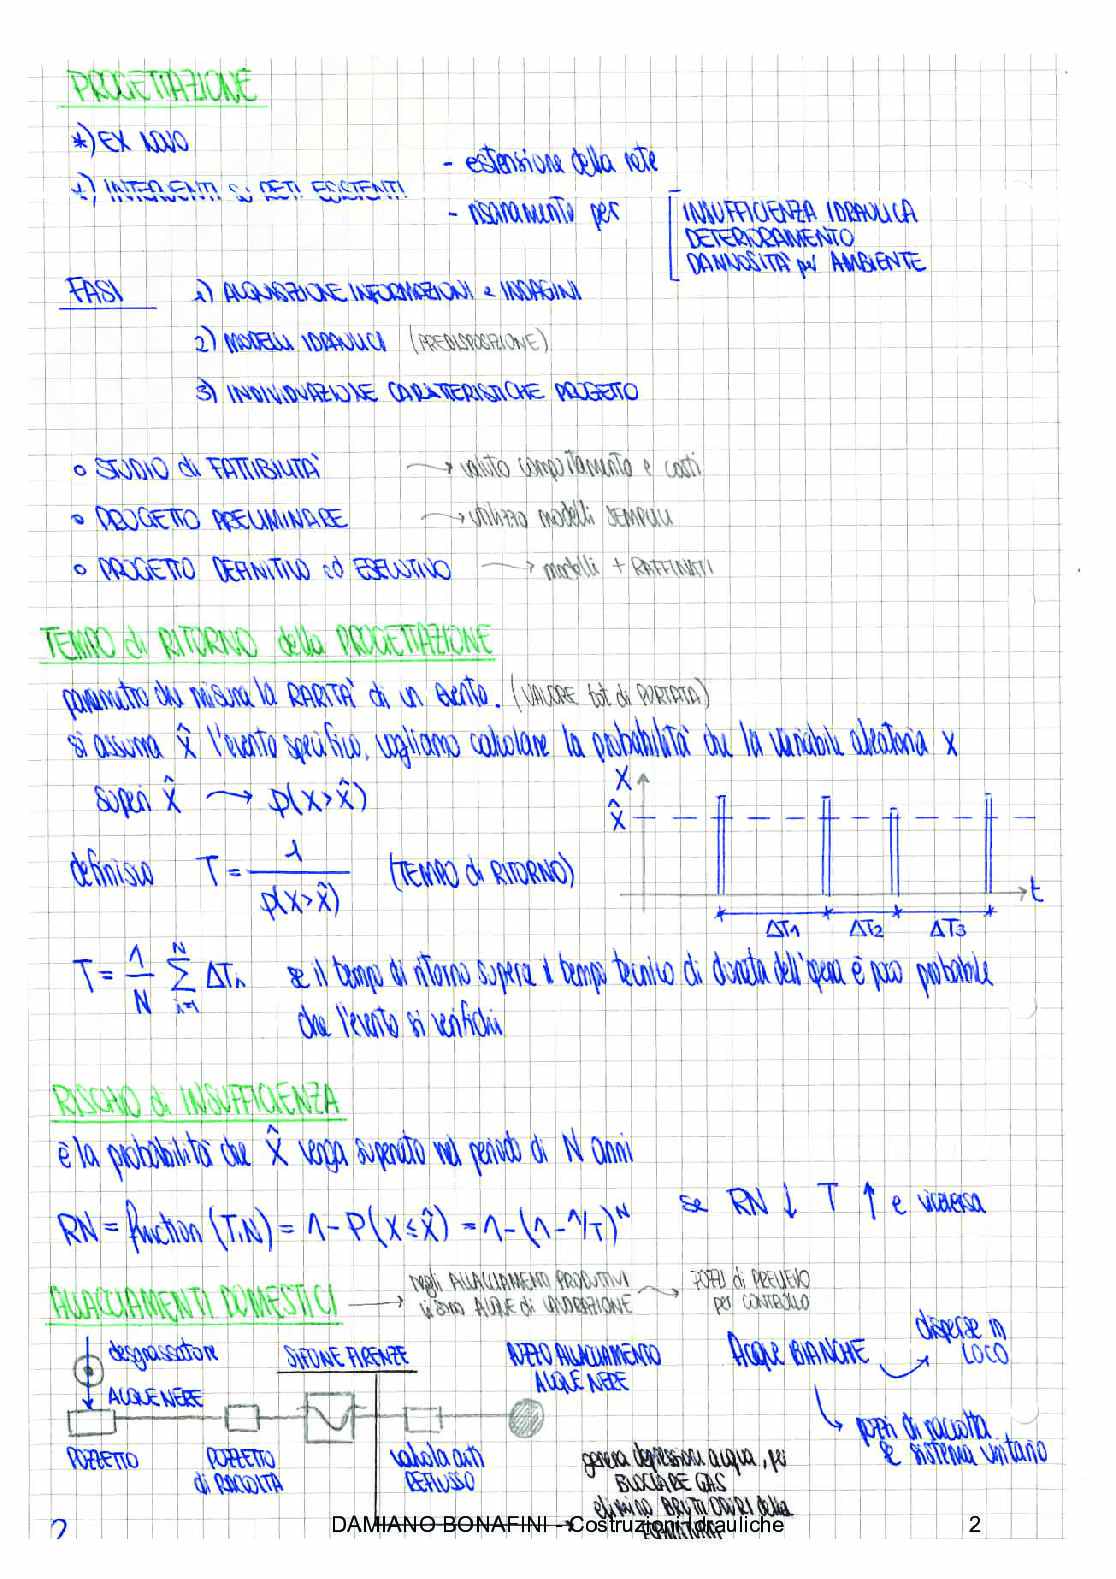 PROGETTAZIONE
*) EX NOVO
*) INTERVENTI su RETI ESISTENTI
- estensione della rete
- risanamento per
INSUFFICIENZA IDRAULICA
DETERIORAMENTO
DANNOSITA' per AMBIENTE
FASI
1) ACQUISIZIONE INFORMAZIONI e INDAGINI
2) MODELLI IDRAULICI (PREDISPOSIZIONE)
3) INDIVIDUAZIONE CARATTERISTICHE PROGETTO
o STUDIO di FATTIBILITA' → valuto comportamento e costi
o PROGETTO PRELIMINARE → utilizzo modelli SEMPLICI
o PROGETTO DEFINITIVO ed ESECUTIVO → modelli + RAFFINATI
TEMPO di RITORNO della PROGETTAZIONE
parametro che misura la RARITA' di un evento. (VALORE tot di PORTATA)
si assuma x̂ l'evento specifico, vogliamo calcolare la probabilità che la variabile aleatoria x
superi x̂ → p(x>x̂)
X
x̂
t
ΔT1 ΔT2 ΔT3
definisco T = 1/p(x>x̂) (TEMPO di RITORNO)
T = 1/N Σ i=1 N ΔTi se il tempo di ritorno supera il tempo tecnico di durata dell'opera è poco probabile
che l'evento si verifichi
RISCHIO di INSUFFICIENZA
è la probabilità che x̂ venga superato nel periodo di N anni
RN = function (T,N) = 1 - P(x≤x̂) = 1-(1-1/T)^N se RN ↓ T ↑ e viceversa
ALLACCIAMENTI DOMESTICI → negli ALLACCIAMENTI PRODUTTIVI → POZZI di PRELIEVO
ACQUE di LAVORAZIONE per CONTROLLO
desgrassatore
SIFONE FIRENZE
POZZO ALLACCIAMENTO
ACQUE NERE
ACQUE BIANCHE → disperse in
LOCO
ACQUE NERE
POZZETTO
POZZETTO
di RACCOLTA
valvola anti
REFLUSSO
pozzi di raccolta
se sistema unitario
genera depressioni acqua, per
BLOCCARE GAS
elimino BRUTTI ODORI della
FOGNATURA
2
DAMIANO BONAFINI - Costruzioni Idrauliche 2